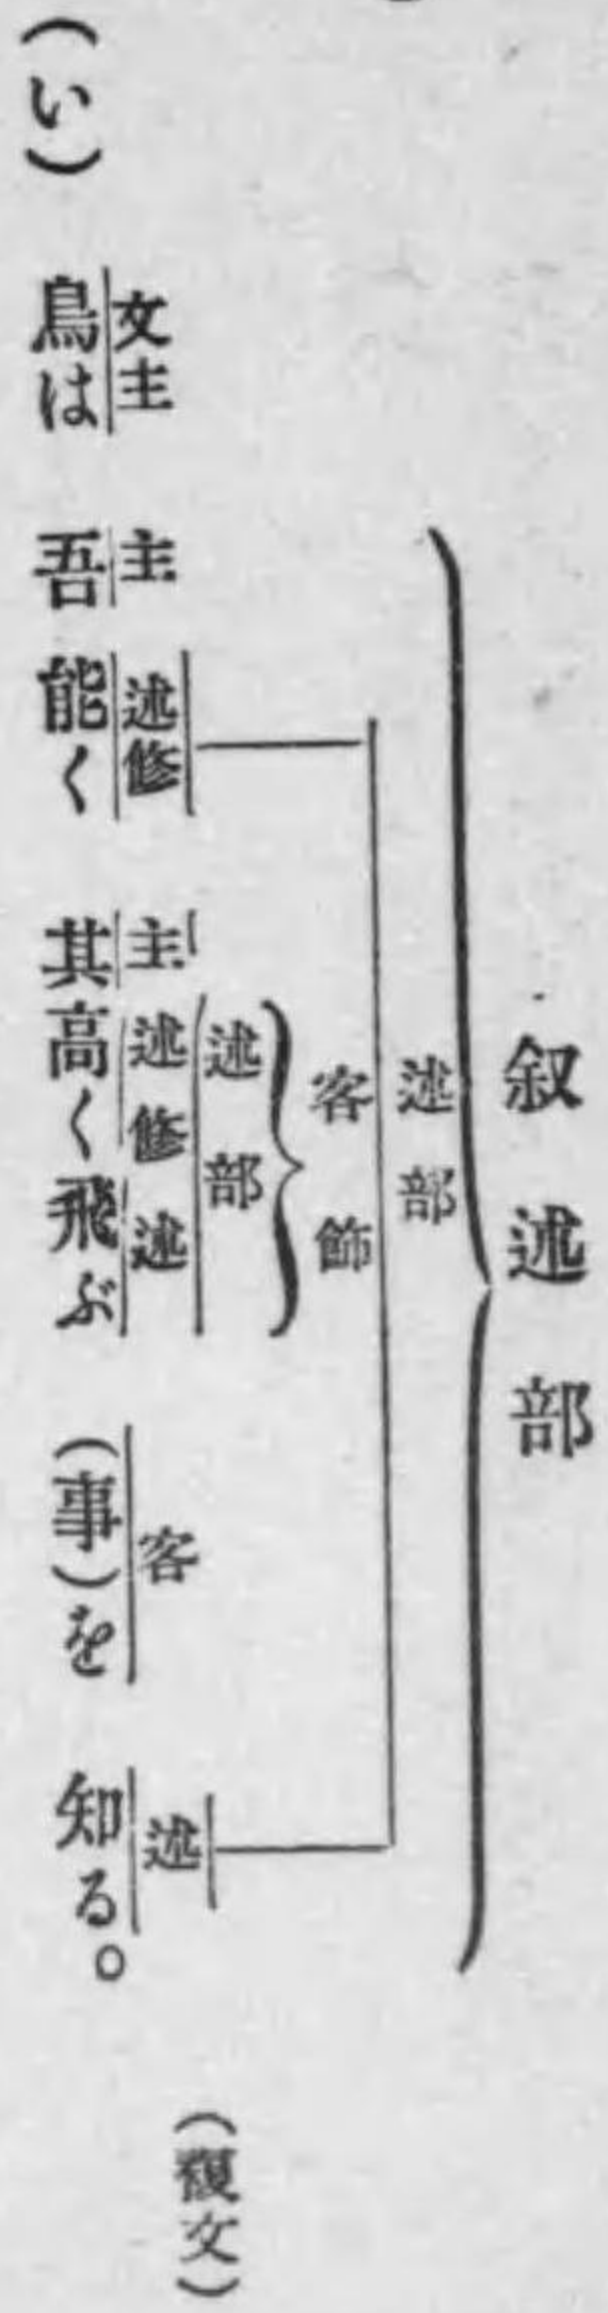 叙述部
述部
客飾
述部
文主 主 述修 主 述修 述 客 述
(い) 鳥は 吾 能く 其高く飛ぶ (事)を 知る。
(複文)